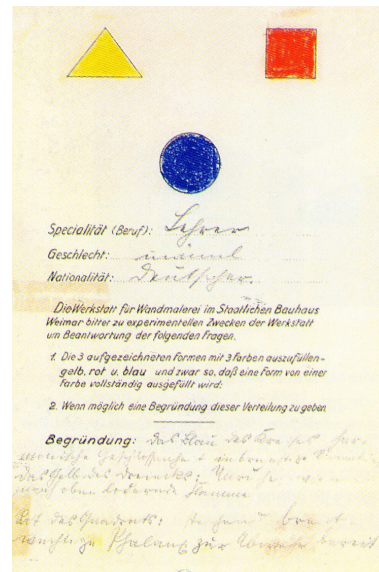 Specialität (Beruf): Lehrer
Geschlecht: männl
Nationalität: Deutscher.
Die Werkstatt für Wandmalerei im Staatlichen Bauhaus
Weimar bittet zu experimentellen Zwecken der Werkstatt
um Beantwortung der folgenden Fragen.
1. Die 3 aufgezeichneten Formen mit 3 Farben auszufüllen-
gelb, rot u. blau und zwar so, daß eine Form von einer
Farbe vollständig ausgefüllt wird:
2. Wenn möglich eine Begründung dieser Verteilung zu geben
Begründung: Das Blau des Kreises har-
monische
Das Gelb des Dreiecks: Unruhe,
nach oben lodernde Flamme
Rot des Quadrats: stehend breit
wuchtige Phalanx zur Abwehr bereit